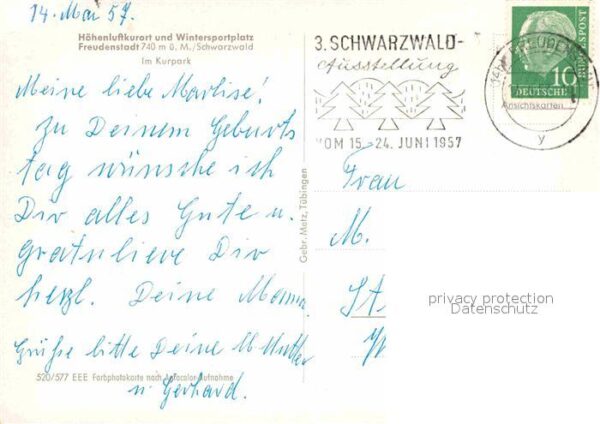 14. Mai 57.
Höhenluftkurort und Wintersportplatz
Freudenstadt 740 m ü. M./Schwarzwald
Im Kurpark
Meine liebe Marlise!
zu Deinem Geburts
tag wünsche ich
Dir alles Gute u.
gratuliere Dir
herzl. Deine Mama
Grüße bitte Deine Mutter
u. Gerhard.
520/577 EEE Farbphotokarte nach Agfacolor-Aufnahme
Gebr. Metz, Tübingen
3. SCHWARZWALD-
Ausstellung
VOM 15.-24. JUNI 1957
10
DEUTSCHE
BUNDESPOST
Ansichtskarten
y
Frau
M.
St
privacy protection
Datenschutz